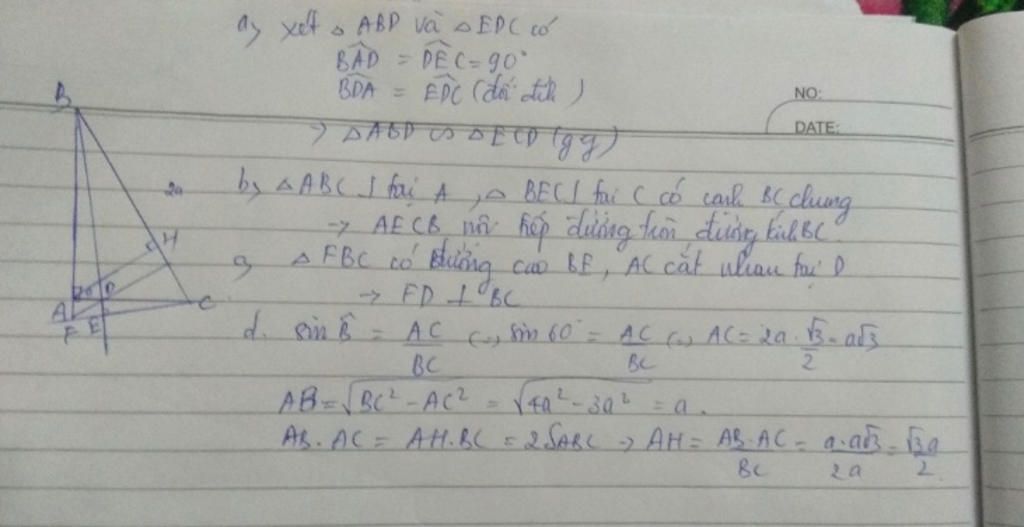 a, xét △ ABD và △ EDC có
BAD = DEC = 90°
BDA = EDC (đối đỉnh)
NO:
DATE:
→ △ABD ∽ △ECD (gg)
b, △ABC ⊥ tại A, △ BEC ⊥ tại C có cạnh BC chung
→ AECB nội tiếp đường tròn đường kính BC
c, △ FBC có đường cao BE, AC cắt nhau tại D
→ FD ⊥ BC
d. sin B = AC/BC (=) sin 60° = AC/BC (=) AC = 2a · √3/2 = a√3
AB = √(BC² - AC²) = √(4a² - 3a²) = a.
AB. AC = AH. BC = 2SABC → AH = AB. AC/BC = a. a√3/2a = √3a/2
B
2a
H
D
A
C
F E